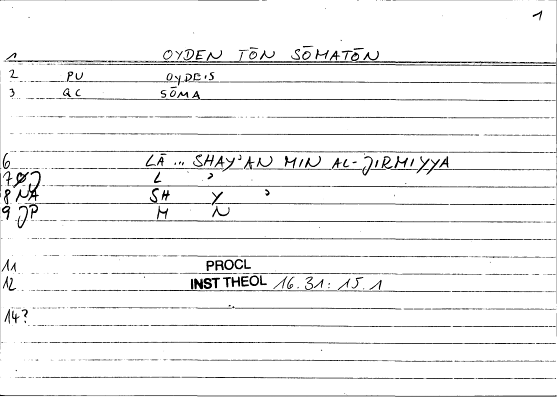 1
1 OYDEN TŌN SŌMATŌN
2 PU OYDEIS
3 QC SŌMA
6 LĀ ... SHAY'AN MIN AL-JIRMIYYA
7 J L '
8 NA SH Y '
9 JP M N
11 PROCL
12 INST THEOL 16.31: 15.1
14?